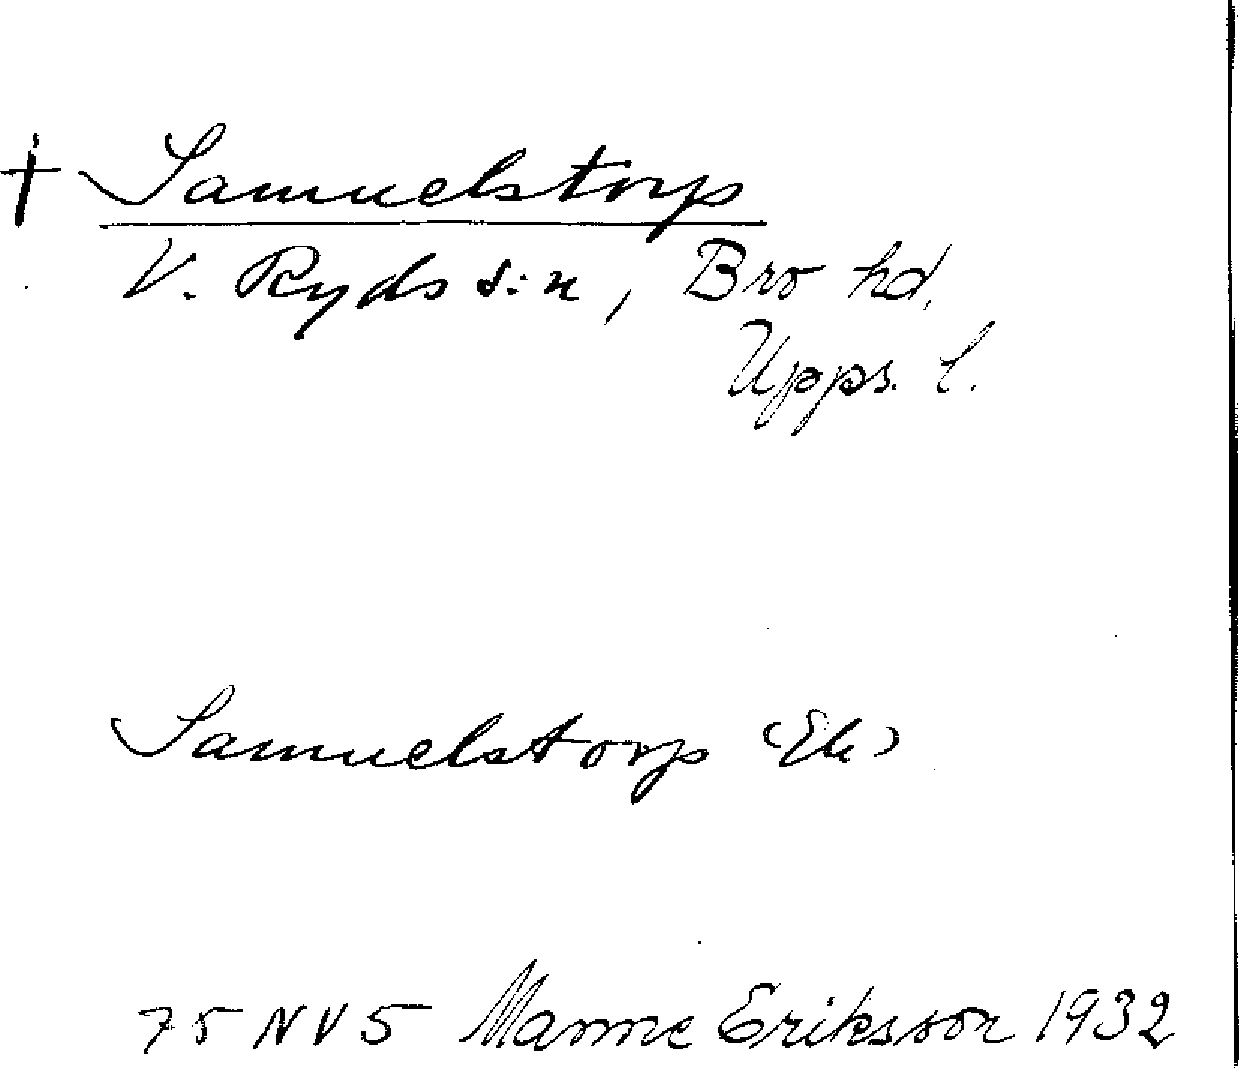 † Samuelstorp
V. Ryds s:n, Bro hd,
Upps. l.
Samuelstorp (Ek)
75 NV 5 Manne Eriksson 1932